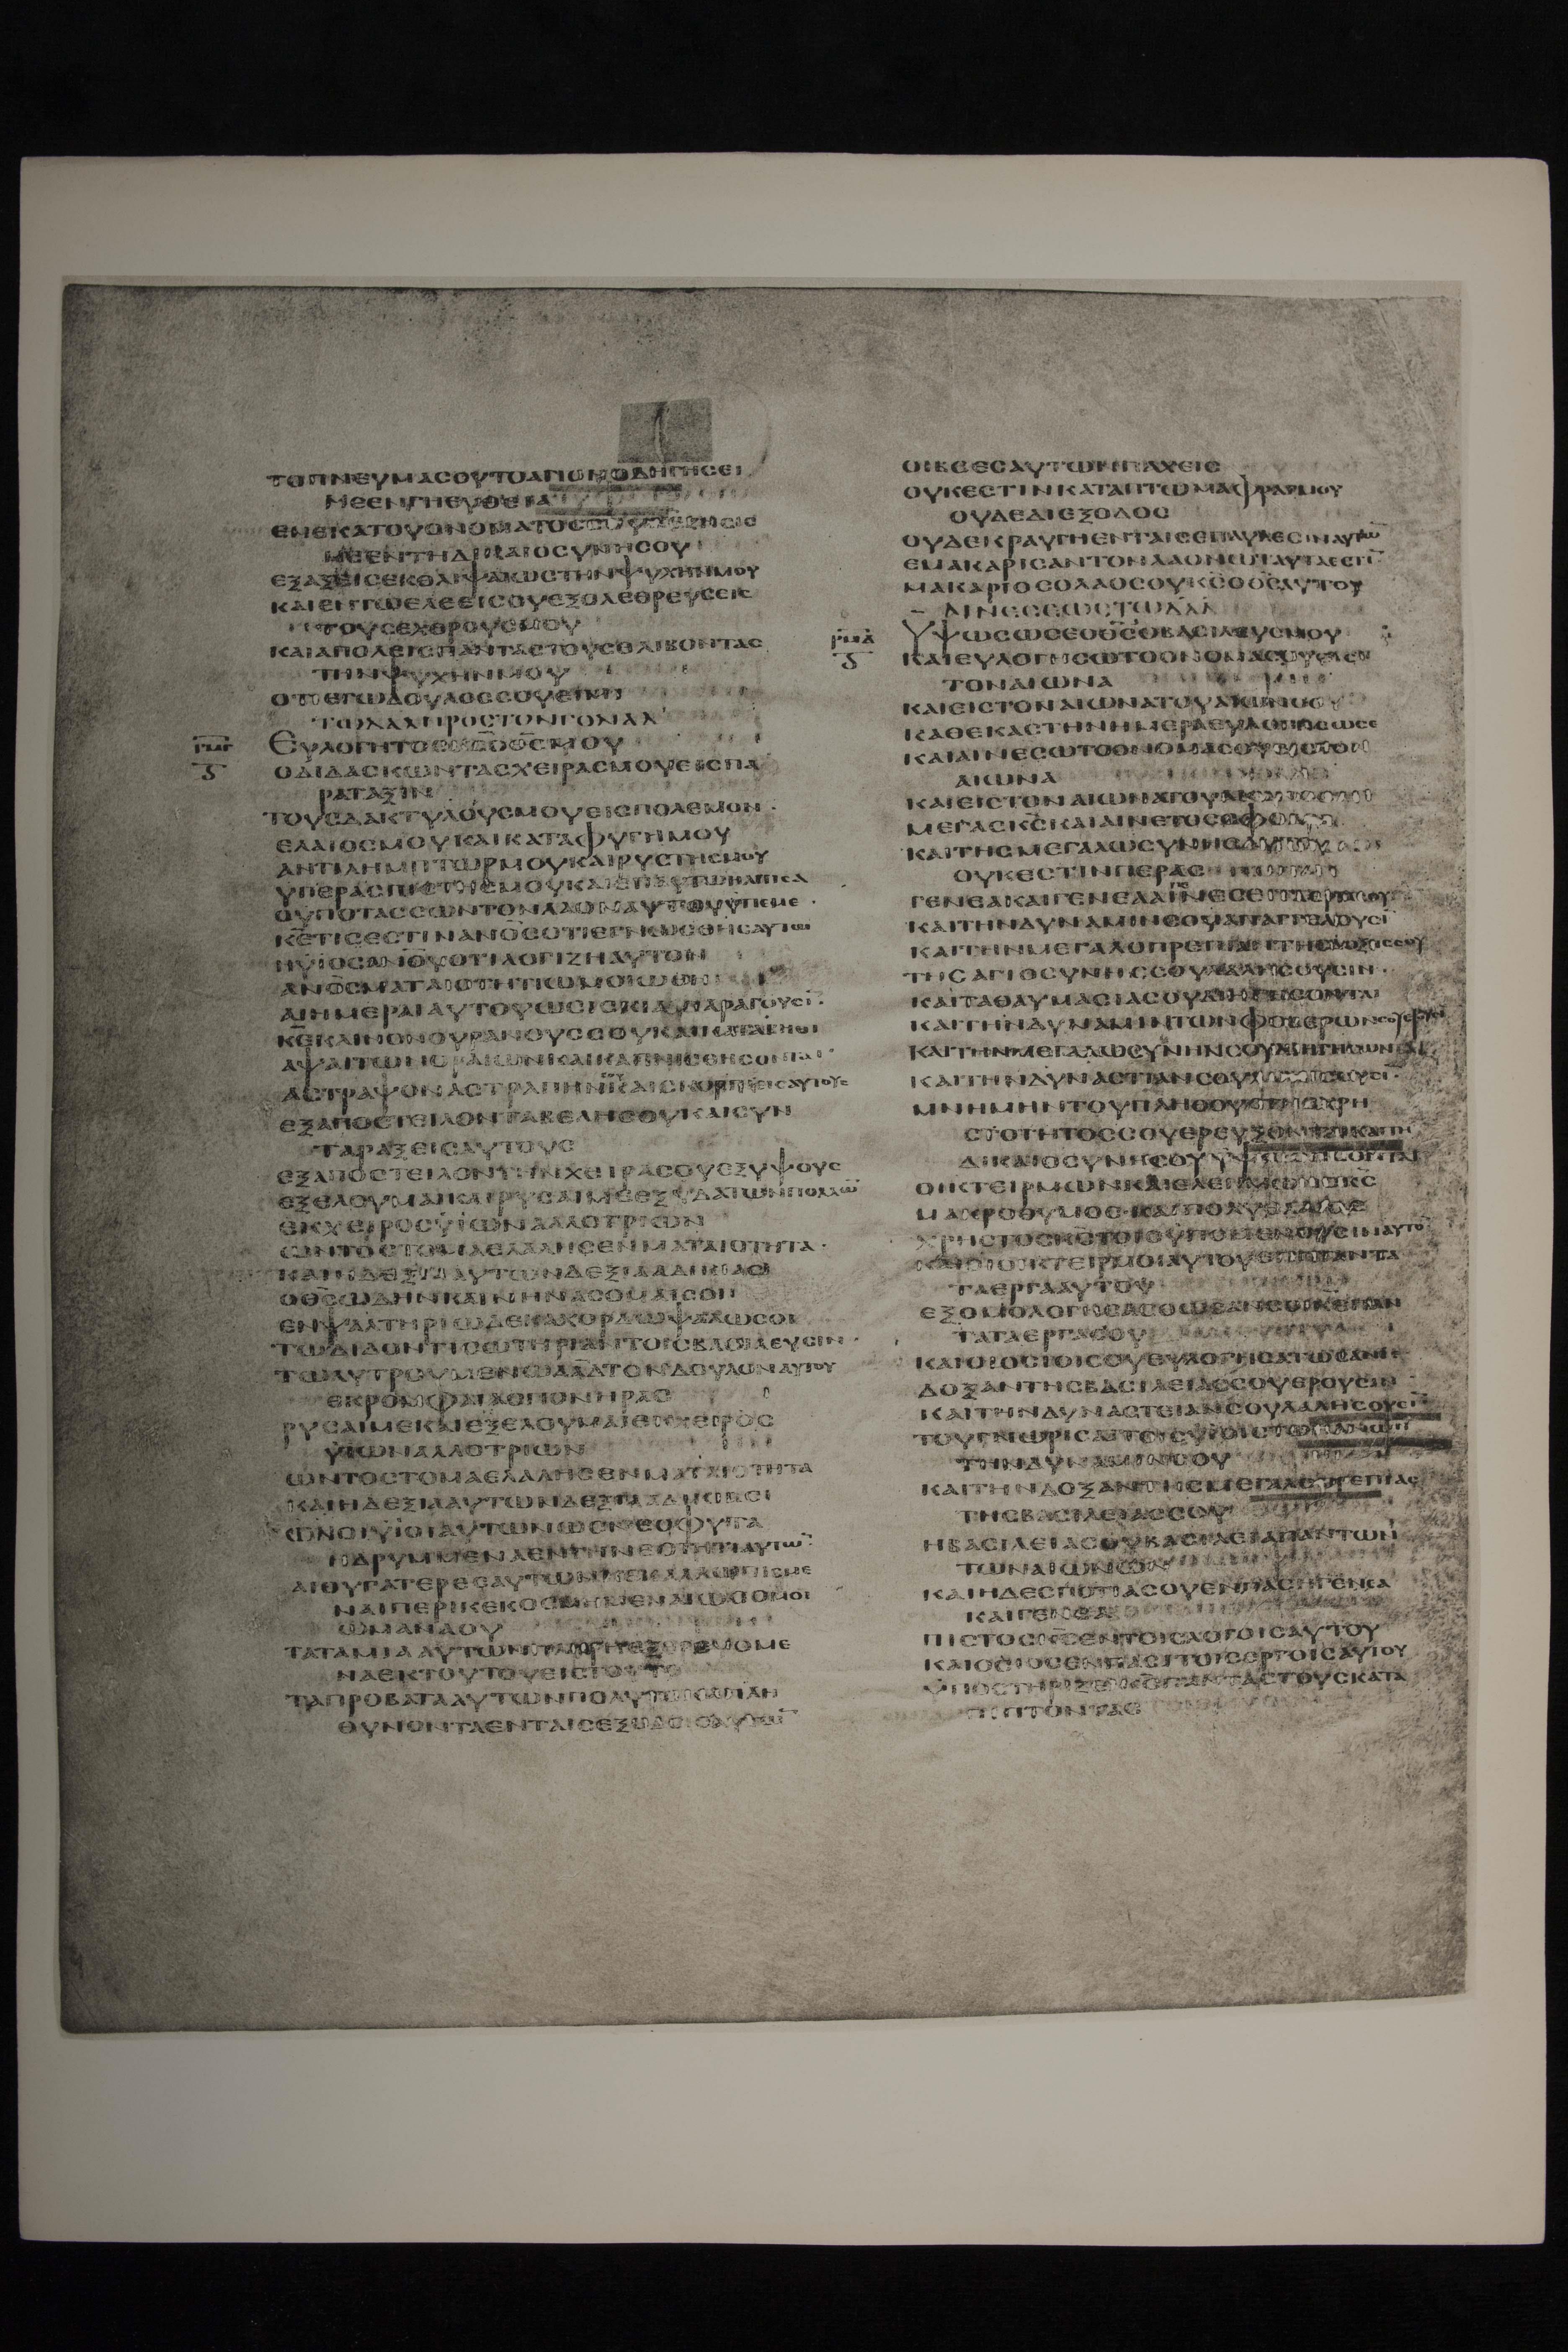 ΤΟΠΝΕΥΜΑϹΟΥΤΟΑΓΙΟΝΟΔΗΓΗϹΕΙ
ΜΕΕΝΓΗΕΥΘΕΙΑ
ΕΝΕΚΑΤΟΥΟΝΟΜΑΤΟϹϹΟΥ
ΜΕΕΝΤΗΔΙΚΑΙΟϹΥΝΗϹΟΥ
ΕΞΑΞΕΙϹΕΚΘΛΙΨΑΙΩϹΤΗΝΨΥΧΗΝΜΟΥ
ΚΑΙΕΝΤΩΕΛΕΕΙϹΟΥΕΞΟΛΕΘΡΕΥϹΕΙϹ
ΤΟΥϹΕΧΘΡΟΥϹΜΟΥ
ΚΑΙΑΠΟΛΕΙϹΠΑΝΤΑϹΤΟΥϹΘΛΙΒΟΝΤΑϹ
ΤΗΝΨΥΧΗΝΜΟΥ
ΟΤΙΕΓΩΔΟΥΛΟϹϹΟΥΕΙΜΙ
ΤΩΔΑΔΠΡΟϹΤΟΝΓΟΛΙΑΔ
ΡΜΓ
ΕΥΛΟΓΗΤΟϹΚϹΟΘϹΜΟΥ
ΟΔΙΔΑϹΚΩΝΤΑϹΧΕΙΡΑϹΜΟΥΕΙϹΠΑ
ΡΑΤΑΞΙΝ
ΤΟΥϹΔΑΚΤΥΛΟΥϹΜΟΥΕΙϹΠΟΛΕΜΟΝ·
ΕΛΑΙΟϹΜΟΥΚΑΙΚΑΤΑΦΥΓΗΜΟΥ
ΑΝΤΙΛΗΜΠΤΩΡΜΟΥΚΑΙΡΥϹΤΗϹΜΟΥ
ΥΠΕΡΑϹΠΙϹΤΗϹΜΟΥΚΑΙΕΠΑΥΤΩΗΛΠΙϹΑ
ΟΥΠΟΤΑϹϹΩΝΤΟΝΛΑΟΝΑΥΤΟΥΥΠΕΜΕ·
ΚΕΤΙϹΕϹΤΙΝΑΝΟϹΟΤΙΕΓΝΩϹΘΗϹΑΥΤΩ
ΗΥΙΟϹΑΝΟΥΟΤΙΛΟΓΙΖΗΑΥΤΟΝ
ΑΝΟϹΜΑΤΑΙΟΤΗΤΙΩΜΟΙΩΘΗ
ΑΙΗΜΕΡΑΙΑΥΤΟΥΩϹΕΙϹΚΙΑΠΑΡΑΓΟΥϹΙ·
ΚΕΚΛΙΝΟΝΟΥΡΑΝΟΥϹϹΟΥΚΑΙΚΑΤΑΒΗΘΙ
ΑΨΑΙΤΩΝΟΡΑΙΩΝΚΑΙΚΑΠΝΙϹΘΗϹΟΝΤΑΙ
ΑϹΤΡΑΨΟΝΑϹΤΡΑΠΗΝΚΑΙϹΚΟΡΠΙΕΙϹΑΥΤΟΥϹ
ΕΞΑΠΟϹΤΕΙΛΟΝΤΑΒΕΛΗϹΟΥΚΑΙϹΥΝ
ΤΑΡΑΞΕΙϹΑΥΤΟΥϹ
ΕΞΑΠΟϹΤΕΙΛΟΝΤΗΝΧΕΙΡΑϹΟΥΕΞΥΨΟΥϹ
ΕΞΕΛΟΥΜΑΙΚΑΙΡΥϹΑΙΜΕΕΞΥΔΑΤΩΝΠΟΛΛΩ
ΕΚΧΕΙΡΟϹΥΙΩΝΑΛΛΟΤΡΙΩΝ
ΩΝΤΟϹΤΟΜΑΕΛΑΛΗϹΕΝΜΑΤΑΙΟΤΗΤΑ·
ΚΑΙΗΔΕΞΙΑΑΥΤΩΝΔΕΞΙΑΑΔΙΚΙΑϹ
ΟΘϹΩΔΗΝΚΑΙΝΗΝΑϹΟΜΑΙϹΟΙ
ΕΝΨΑΛΤΗΡΙΩΔΕΚΑΧΟΡΔΩΨΑΛΩϹΟΙ
ΤΩΔΙΔΟΝΤΙϹΩΤΗΡΙΑΝΤΟΙϹΒΑϹΙΛΕΥϹΙΝ·
ΤΩΛΥΤΡΟΥΜΕΝΩΔΑΔΤΟΝΔΟΥΛΟΝΑΥΤΟΥ
ΕΚΡΟΜΦΑΙΑϹΠΟΝΗΡΑϹ
ΡΥϹΑΙΜΕΚΑΙΕΞΕΛΟΥΜΑΙΕΚΧΕΙΡΟϹ
ΥΙΩΝΑΛΛΟΤΡΙΩΝ
ΩΝΤΟϹΤΟΜΑΕΛΑΛΗϹΕΝΜΑΤΑΙΟΤΗΤΑ
ΚΑΙΗΔΕΞΙΑΑΥΤΩΝΔΕΞΙΑΑΔΙΚΙΑϹ
ΩΝΟΙΥΙΟΙΑΥΤΩΝΩϹΝΕΟΦΥΤΑ
ΗΔΡΥΜΜΕΝΑΕΝΤΗΝΕΟΤΗΤΙΑΥΤΩ
ΑΙΘΥΓΑΤΕΡΕϹΑΥΤΩΝΚΕΚΑΛΛΩΠΙϹΜΕ
ΝΑΙΠΕΡΙΚΕΚΟϹΜΗΜΕΝΑΙΩϹΟΜΟΙ
ΩΜΑΝΑΟΥ
ΤΑΤΑΜΙΑΑΥΤΩΝΠΛΗΡΗΕΞΕΡΕΥΓΟΜΕ
ΝΑΕΚΤΟΥΤΟΥΕΙϹΤΟΥΤΟ
ΤΑΠΡΟΒΑΤΑΑΥΤΩΝΠΟΛΥΤΟΚΑΠΛΗ
ΘΥΝΟΝΤΑΕΝΤΑΙϹΕΞΟΔΟΙϹΑΥΤΩ
ΟΙΒΟΕϹΑΥΤΩΝΠΑΧΕΙϹ
ΟΥΚΕϹΤΙΝΚΑΤΑΠΤΩΜΑΦΡΑΓΜΟΥ
ΟΥΔΕΔΙΕΞΟΔΟϹ
ΟΥΔΕΚΡΑΥΓΗΕΝΤΑΙϹΕΠΑΥΛΕϹΙΝΑΥΤΩ
ΕΜΑΚΑΡΙϹΑΝΤΟΝΛΑΟΝΩΤΑΥΤΑΕϹΤΙ
ΜΑΚΑΡΙΟϹΟΛΑΟϹΟΥΚϹΟΘϹΑΥΤΟΥ
ΑΙΝΕϹΕΩϹΤΩΔΑΔ
ΡΜΔ
ΥΨΩϹΩϹΕΟΘϹΟΒΑϹΙΛΕΥϹΜΟΥ
ΚΑΙΕΥΛΟΓΗϹΩΤΟΟΝΟΜΑϹΟΥΕΙϹ
ΤΟΝΑΙΩΝΑ
ΚΑΙΕΙϹΤΟΝΑΙΩΝΑΤΟΥΑΙΩΝΟϹ
ΚΑΘΕΚΑϹΤΗΝΗΜΕΡΑΕΥΛΟΓΗϹΩϹΕ
ΚΑΙΑΙΝΕϹΩΤΟΟΝΟΜΑϹΟΥΕΙϹΤΟΝ
ΑΙΩΝΑ
ΚΑΙΕΙϹΤΟΝΑΙΩΝΑΤΟΥΑΙΩΝΟϹ
ΜΕΓΑϹΚϹΚΑΙΑΙΝΕΤΟϹϹΦΟΔΡΑ
ΚΑΙΤΗϹΜΕΓΑΛΩϹΥΝΗϹΑΥΤΟΥ
ΟΥΚΕϹΤΙΝΠΕΡΑϹ
ΓΕΝΕΑΚΑΙΓΕΝΕΑΑΙΝΕϹΕΙΤΑΕΡΓΑϹΟΥ
ΚΑΙΤΗΝΔΥΝΑΜΙΝϹΟΥΑΠΑΓΓΕΛΟΥϹΙ
ΚΑΙΤΗΝΜΕΓΑΛΟΠΡΕΠΙΑΝΤΗϹΔΟΞΗϹϹΟΥ
ΤΗϹΑΓΙΟϹΥΝΗϹϹΟΥΛΑΛΗϹΟΥϹΙΝ·
ΚΑΙΤΑΘΑΥΜΑϹΙΑϹΟΥΔΙΗΓΗϹΟΝΤΑΙ
ΚΑΙΤΗΝΔΥΝΑΜΙΝΤΩΝΦΟΒΕΡΩΝϹΟΥΕΡΟΥϹΙ
ΚΑΙΤΗΝΜΕΓΑΛΩϹΥΝΗΝϹΟΥΔΙΗΓΗϹΟΝΤΑΙ
ΚΑΙΤΗΝΔΥΝΑϹΤΙΑΝϹΟΥΛΑΛΗϹΟΥϹΙ
ΜΝΗΜΗΝΤΟΥΠΛΗΘΟΥϹΤΗϹΧΡΗ
ϹΤΟΤΗΤΟϹϹΟΥΕΡΕΥΞΟΝΤΑΙΚΑΙΤΗ
ΔΙΚΑΙΟϹΥΝΗϹΟΥ
ΟΙΚΤΕΙΡΜΩΝΚΑΙΕΛΕΗΜΩΝΟΚϹ
ΜΑΚΡΟΘΥΜΟϹΚΑΙΠΟΛΥΕΛΕΟϹ
ΧΡΗϹΤΟϹΚϹΤΟΙϹΥΠΟΜΕΝΟΥϹΙΝΑΥΤΟ
ΚΑΙΟΙΟΙΚΤΕΙΡΜΟΙΑΥΤΟΥΕΠΙΠΑΝΤΑ
ΤΑΕΡΓΑΑΥΤΟΥ
ΕΞΟΜΟΛΟΓΗϹΑϹΘΩϹΑΝϹΟΙΚΕΠΑΝ
ΤΑΤΑΕΡΓΑϹΟΥ
ΚΑΙΟΙΟϹΙΟΙϹΟΥΕΥΛΟΓΗϹΑΤΩϹΑΝϹΕ
ΔΟΞΑΝΤΗϹΒΑϹΙΛΕΙΑϹϹΟΥΕΡΟΥϹΙΝ
ΚΑΙΤΗΝΔΥΝΑϹΤΕΙΑΝϹΟΥΛΑΛΗϹΟΥϹΙ
ΤΟΥΓΝΩΡΙϹΑΙΤΟΙϹΥΙΟΙϹΤΩΝΑΝΩΝ
ΤΗΝΔΥΝΑΜΙΝϹΟΥ
ΚΑΙΤΗΝΔΟΞΑΝΤΗϹΜΕΓΑΛΟΠΡΕΠΙΑϹ
ΤΗϹΒΑϹΙΛΕΙΑϹϹΟΥ
ΗΒΑϹΙΛΕΙΑϹΟΥΒΑϹΙΛΕΙΑΠΑΝΤΩΝ
ΤΩΝΑΙΩΝΩΝ
ΚΑΙΗΔΕϹΠΟΤΙΑϹΟΥΕΝΠΑϹΗΓΕΝΕΑ
ΚΑΙΓΕΝΕΑ
ΠΙϹΤΟϹΚϹΕΝΤΟΙϹΛΟΓΟΙϹΑΥΤΟΥ
ΚΑΙΟϹΙΟϹΕΝΠΑϹΙΤΟΙϹΕΡΓΟΙϹΑΥΤΟΥ
ΥΠΟϹΤΗΡΙΖΕΙΚϹΠΑΝΤΑϹΤΟΥϹΚΑΤΑ
ΠΙΠΤΟΝΤΑϹ